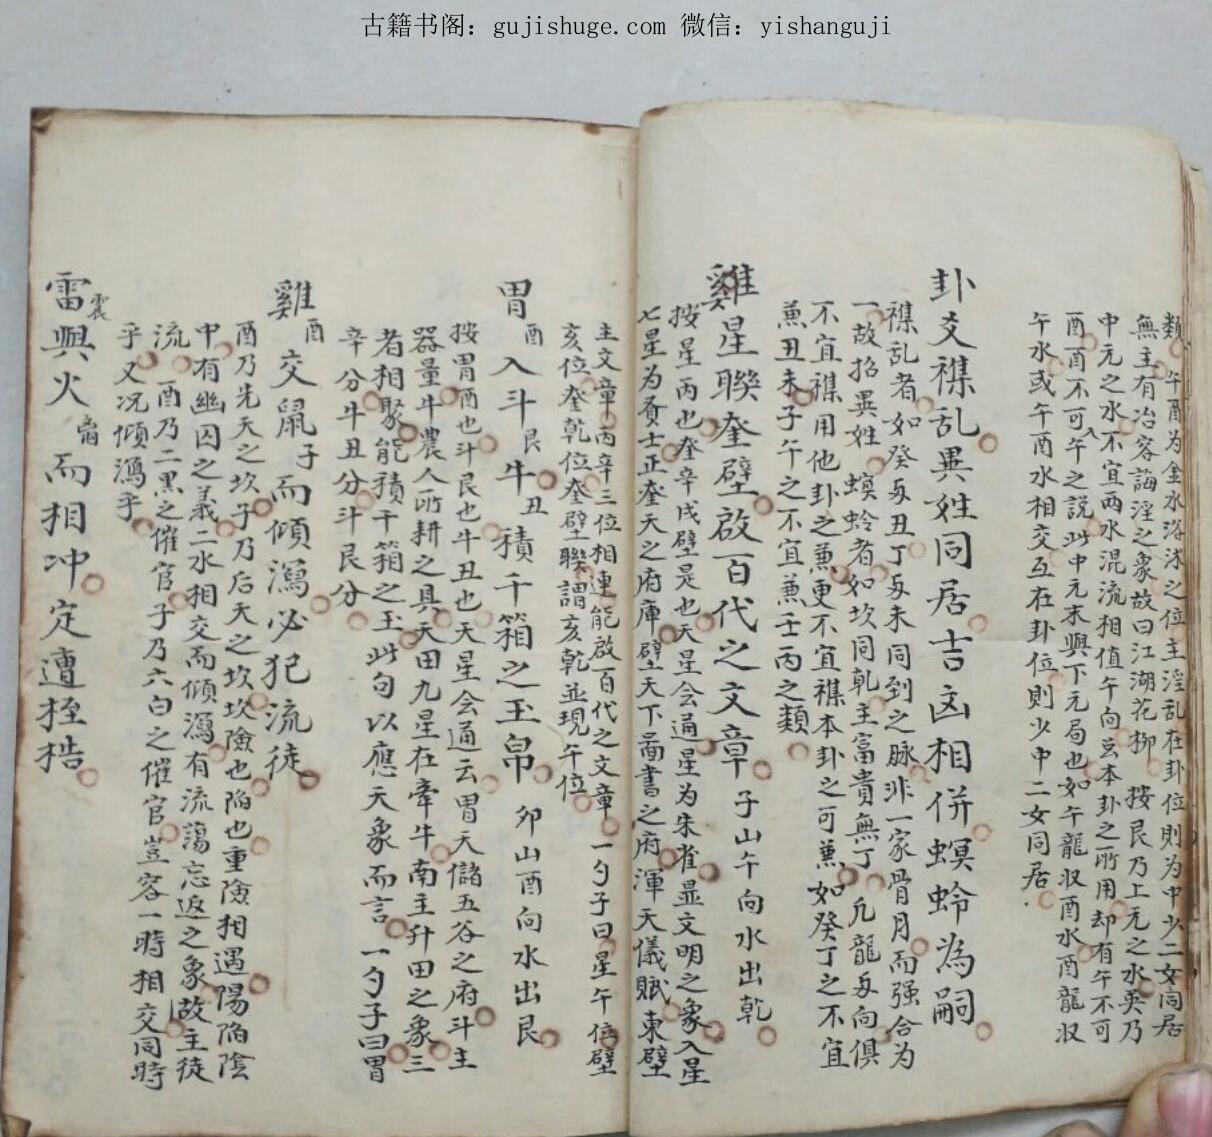 古籍书阁：gujishuge.com 微信：yishanguji
類午酉为金水浴沐之位主淫乱在卦位則为中少二女同居
無主有冶容誨淫之象故曰江湖花柳 按艮乃上元之水英乃
中元之水不宜两水混流相值午向亥本卦之所用却有午不可
酉酉不可入午之説此中元末興下元局也如午龍収酉水酉龍収
午水或午酉水相交互在卦位則少中二女同居
卦爻襍乱異姓同居吉凶相併螟蛉為嗣
襍乱者如癸夘丑丁夘未同到之脉非一家骨月而强合为
一故招異姓螟蛉者如坎同乹主富貴無丁凡龍夘向俱
不宜襍用他卦之蒹更不宜襍本卦之可蒹如癸丁之不宜
蒹丑未子午之不宜蒹壬丙之類
雞星聯奎壁啟百代之文章 子山午向水出乹
按星丙也奎辛戌壁是也天星会通星为朱雀显文明之象入星
七星为賁士正奎天之府庫壁天下啚書之府渾天儀賦東壁
主文章丙辛三位相連能啟百代之文章一勺子曰星午位壁
亥位奎乹位奎壁聯謂亥乹並現午位
胃酉入斗艮牛丑積千箱之玉帛 夘山酉向水出艮
按胃酉也斗艮也牛丑也天星会通云胃天儲五谷之府斗主
器量牛農人所耕之具天田九星在牽牛南主升田之象三
者相聚能積千箱之玉此句以應天象而言 一勺子曰胃
辛分牛丑分斗艮分
雞酉交鼠子而傾瀉必犯流徒
酉乃先天之坎子乃后天之坎坎險也陷也重險相遇陽陷陰
中有幽囚之義二水相交而傾瀉有流蕩忘返之象故主徒
流 酉乃二黑之催官子乃六白之催官豈容一時相交同時
乎又况傾瀉乎
雷震興火离而相冲定遭桎梏